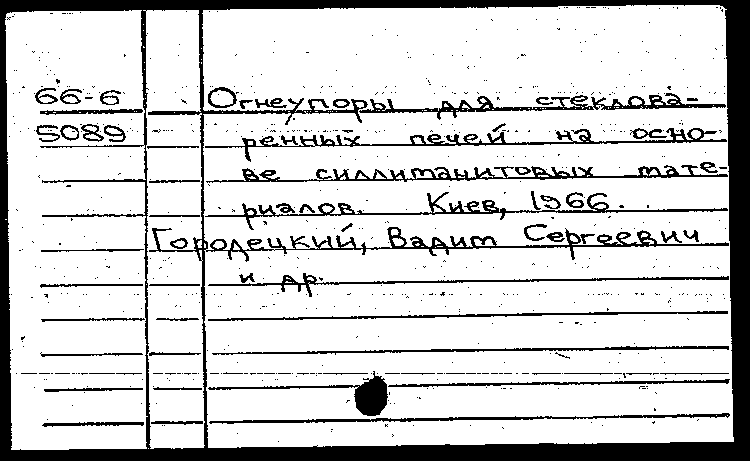 66-6 Огнеупоры для стеклова-
5089 ренных печей на осно-
ве силлиманитовых мате-
риалов. Киев, 1966.
Городецкий, Вадим Сергеевич
и др.